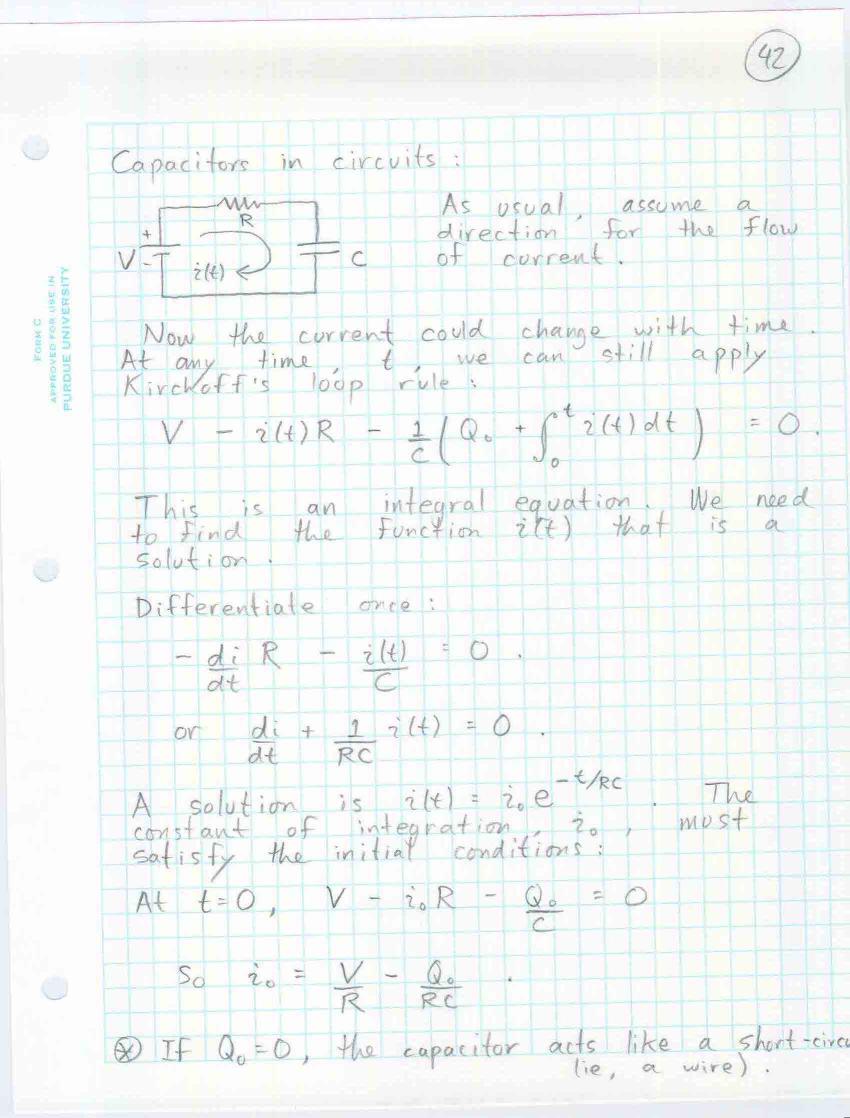 42
Capacitors in circuits :
R
+
V
-
i(t)
C
As usual, assume a
direction for the flow
of current.
FORM C
APPROVED FOR USE IN
PURDUE UNIVERSITY
Now the current could change with time.
At any time, t, we can still apply
Kirchoff's loop rule :
V - i(t)R - 1/C ( Q₀ + ∫₀ᵗ i(t) dt ) = 0.
This is an integral equation. We need
to find the function i(t) that is a
solution.
Differentiate once :
- di/dt R - i(t)/C = 0.
or di/dt + 1/RC i(t) = 0.
A solution is i(t) = i₀ e^(-t/RC). The
constant of integration, i₀, must
satisfy the initial conditions :
At t=0, V - i₀R - Q₀/C = 0
So i₀ = V/R - Q₀/RC.
⊗ If Q₀=0, the capacitor acts like a short-circu
(ie, a wire).